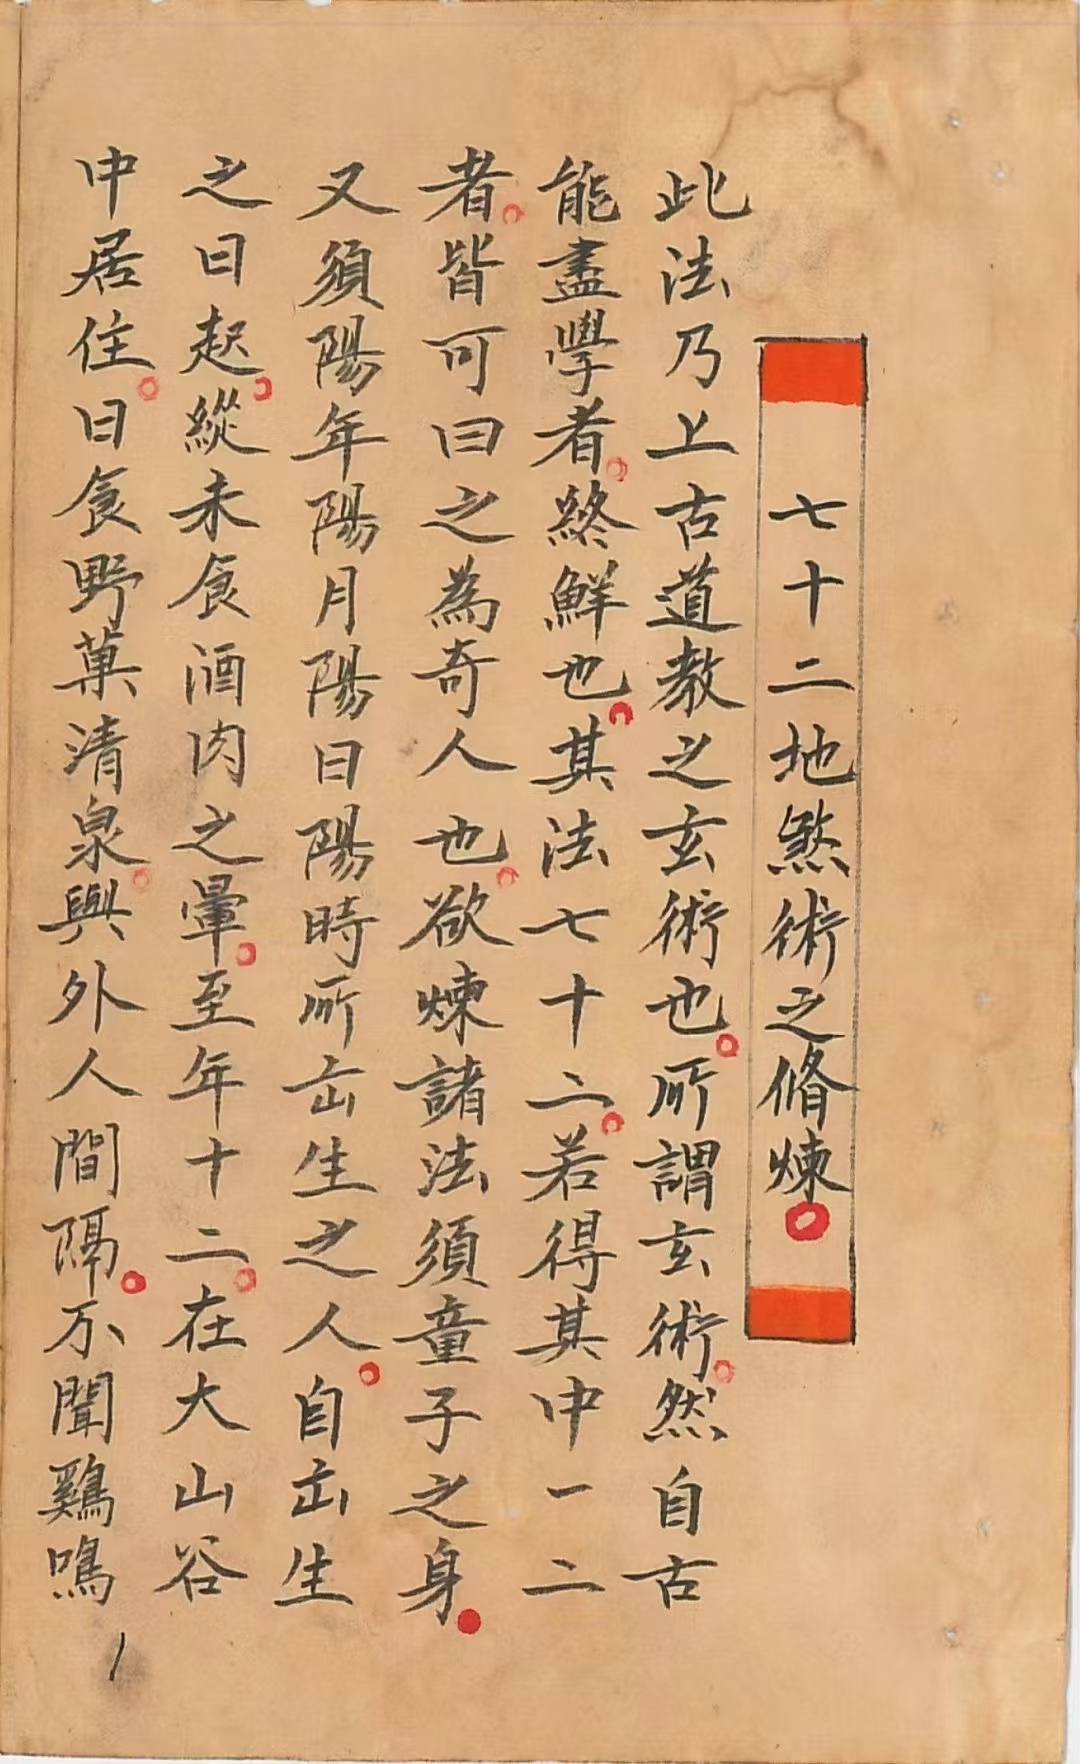 七十二地煞術之脩煉。
此法乃上古道教之玄術也。所謂玄術。然自古
能盡學者。終鮮也。其法七十二。若得其中一二
者。皆可曰之為奇人也。欲煉諸法須童子之身。
又須陽年陽月陽日陽時所出生之人。自出生
之日起。縱未食酒肉之暈。至年十二。在大山谷
中居住。日食野菓清泉。與外人間隔。不聞鷄鳴
1